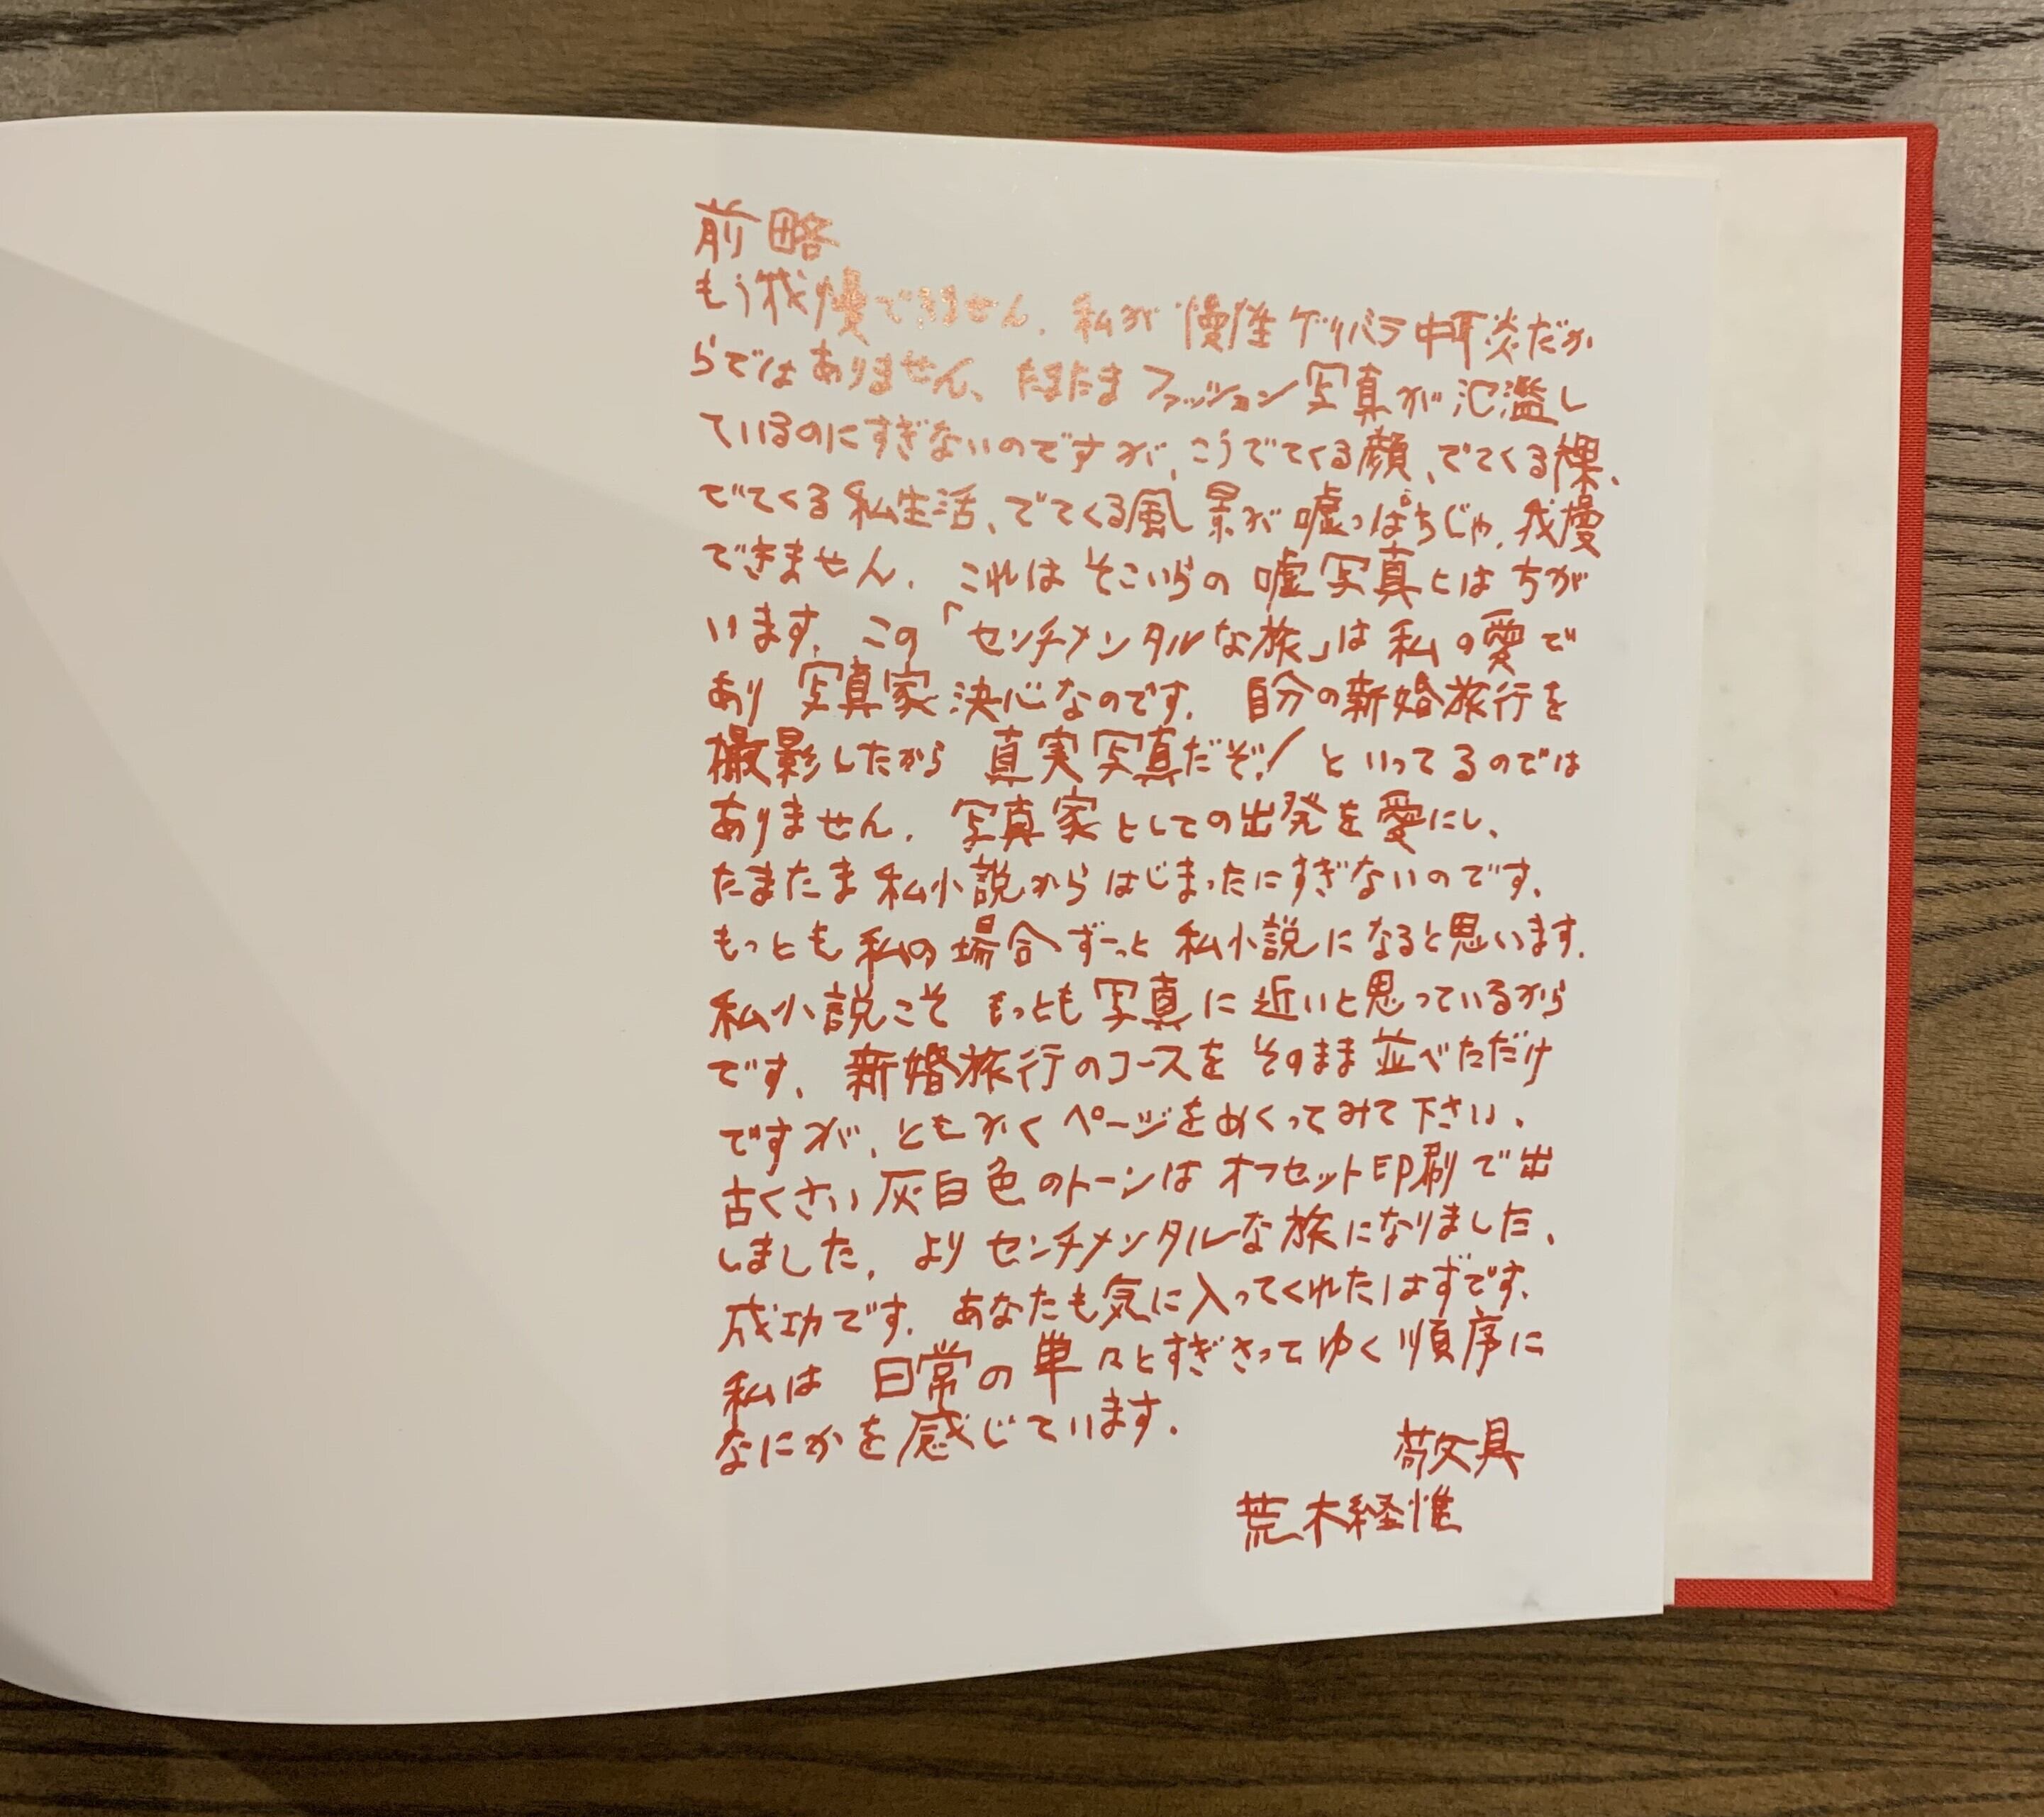 前略
もう我慢できません。私が慢性ゲリバラ中耳炎だか
らではありません、たまたまファッション写真が氾濫し
ているのにすぎないのですが、こうでてくる顔、でてくる裸、
でてくる私生活、でてくる風景が嘘っぱちじゃ、我慢
できません。これはそこいらの嘘写真とはちが
います。この「センチメンタルな旅」は私の愛で
あり写真家決心なのです。自分の新婚旅行を
撮影したから真実写真だぞ!といってるのでは
ありません。写真家としての出発を愛にし、
たまたま私小説からはじまったにすぎないのです。
もっとも私の場合ずーっと私小説になると思います。
私小説こそもっとも写真に近いと思っているから
です。新婚旅行のコースをそのまま並べただけ
ですが、ともかくページをめくってみて下さい。
古くさい灰白色のトーンはオフセット印刷で出
しました。よりセンチメンタルな旅になりました。
成功です。あなたも気に入ってくれたはずです。
私は日常の単々とすぎさってゆく順序に
なにかを感じています。
敬具
荒木経惟